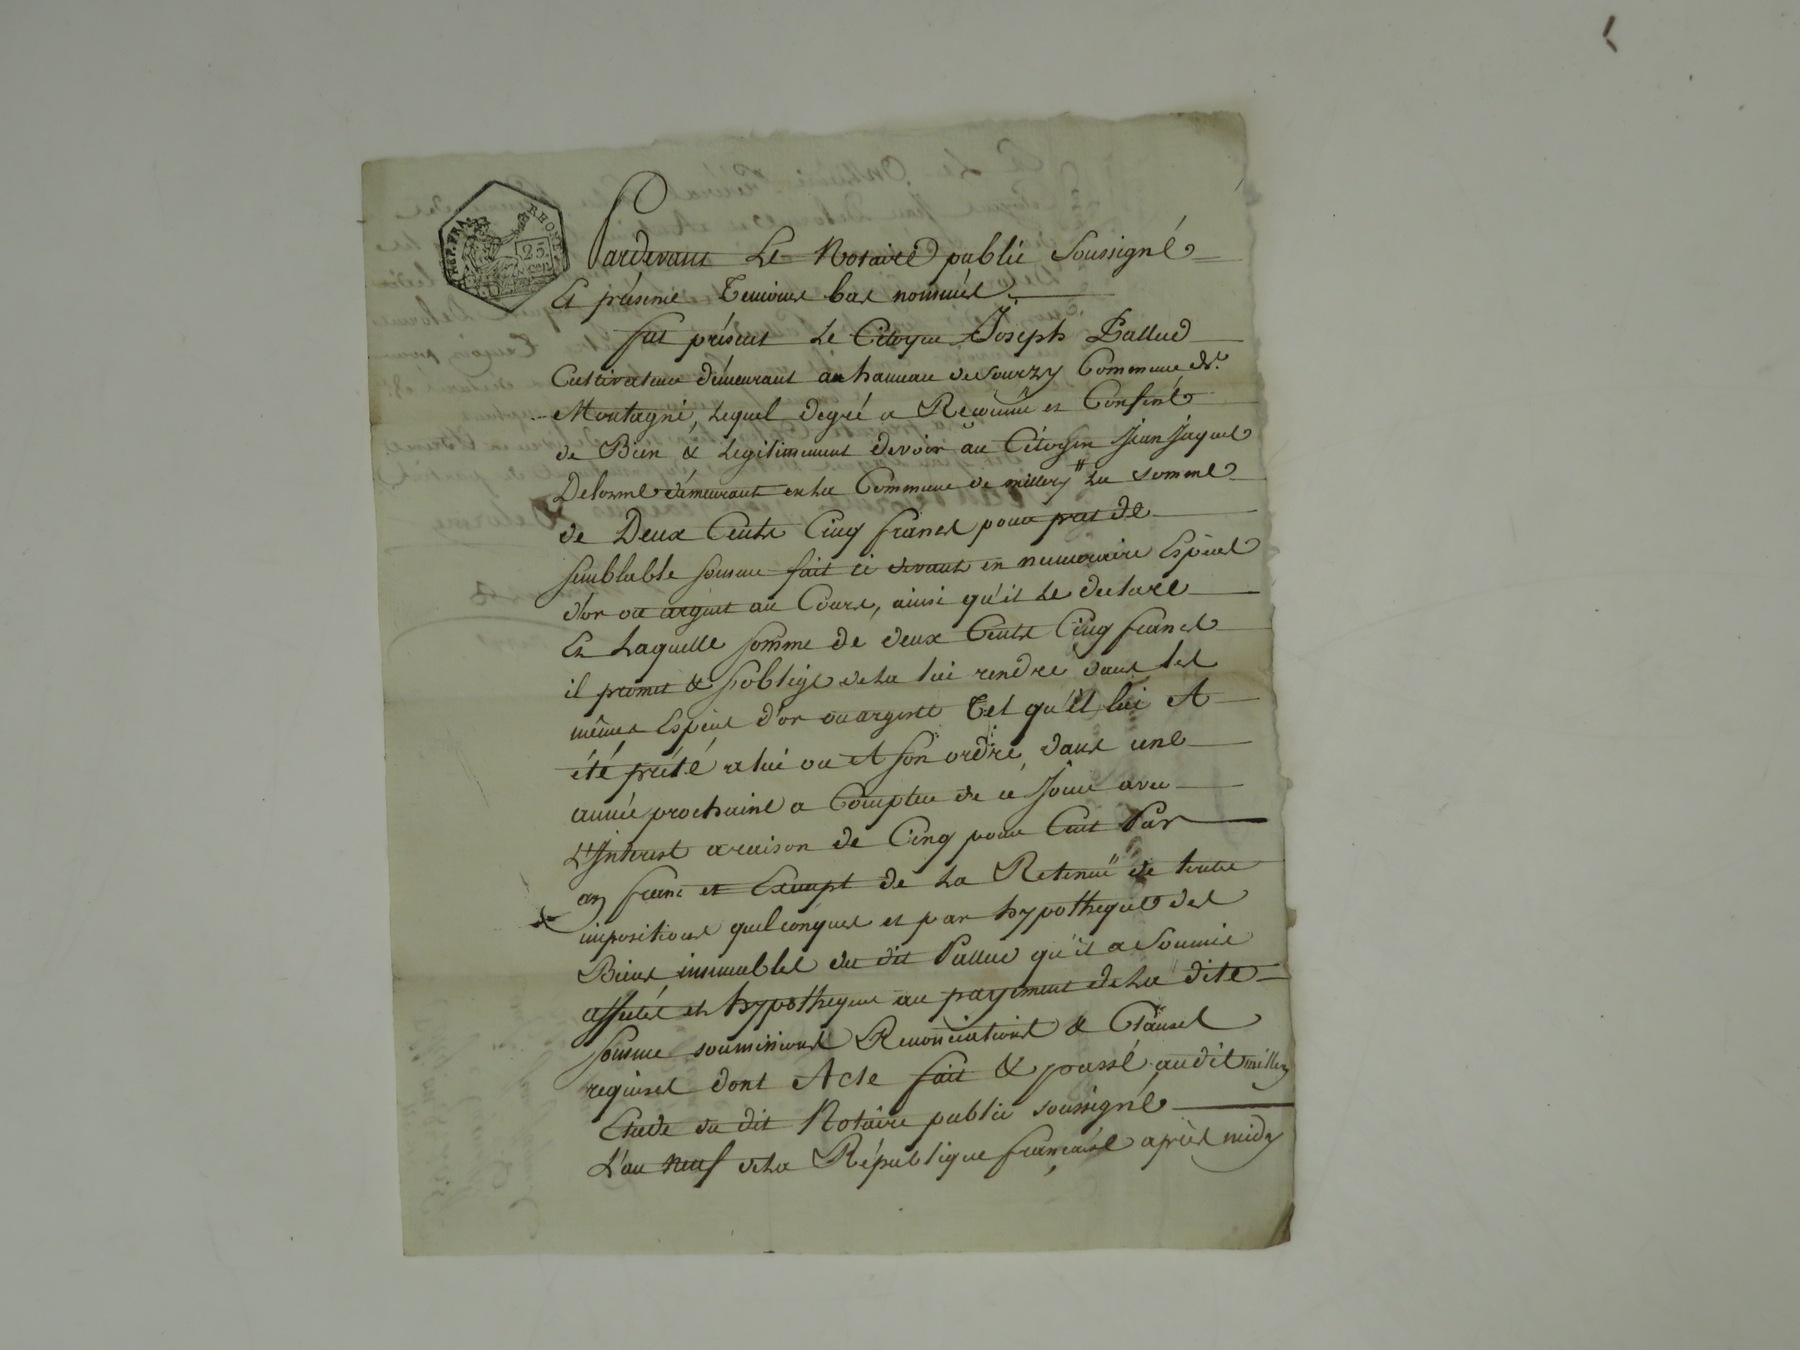 RÉP. FRA. RHONE
25 cen
Pardevant Le Notaire public Soussigné
Et présence Temoins bas nommés
fut présent Le Citoyen Joseph Pallud
Cultivateur démeurant au hameau de Sourzy Commune de
Montagné, Lequel degré a Reconnu et Confessé
de Bien & Legitimement devoir au Citoyen Jean Jaques
Delorme démeurant en La Commune de millery La Somme
de Deux Cents Cinq francs pour prat de
semblable somme fait ci devant en numeraire Espèces
d'or ou argent au Cours, ainsi qu'il Le declare
Et Laquelle somme de deux Cents Cinq francs
il promet & s'oblige de La lui rendre dans les
mêmes Espèces d'or ou argent Tel qu'il lui A
été prété a lui ou A son ordre dans une
année prochaine a Compter de ce Jour avec
L'Interest a raison de Cinq pour Cent Par
an franc et Exempt de La Retenüe de toutes
impositions quelconques et par hypotheque des
Biens immeubles du dit Pallud qu'il a Soumis
affectés et hypothequés au payement de La dite
somme soumissions Renonciations & Clauses
requises dont Acte fait & passé audit millery
Etude du dit Notaire public soussigné
L'an neuf de La République francaise après midy